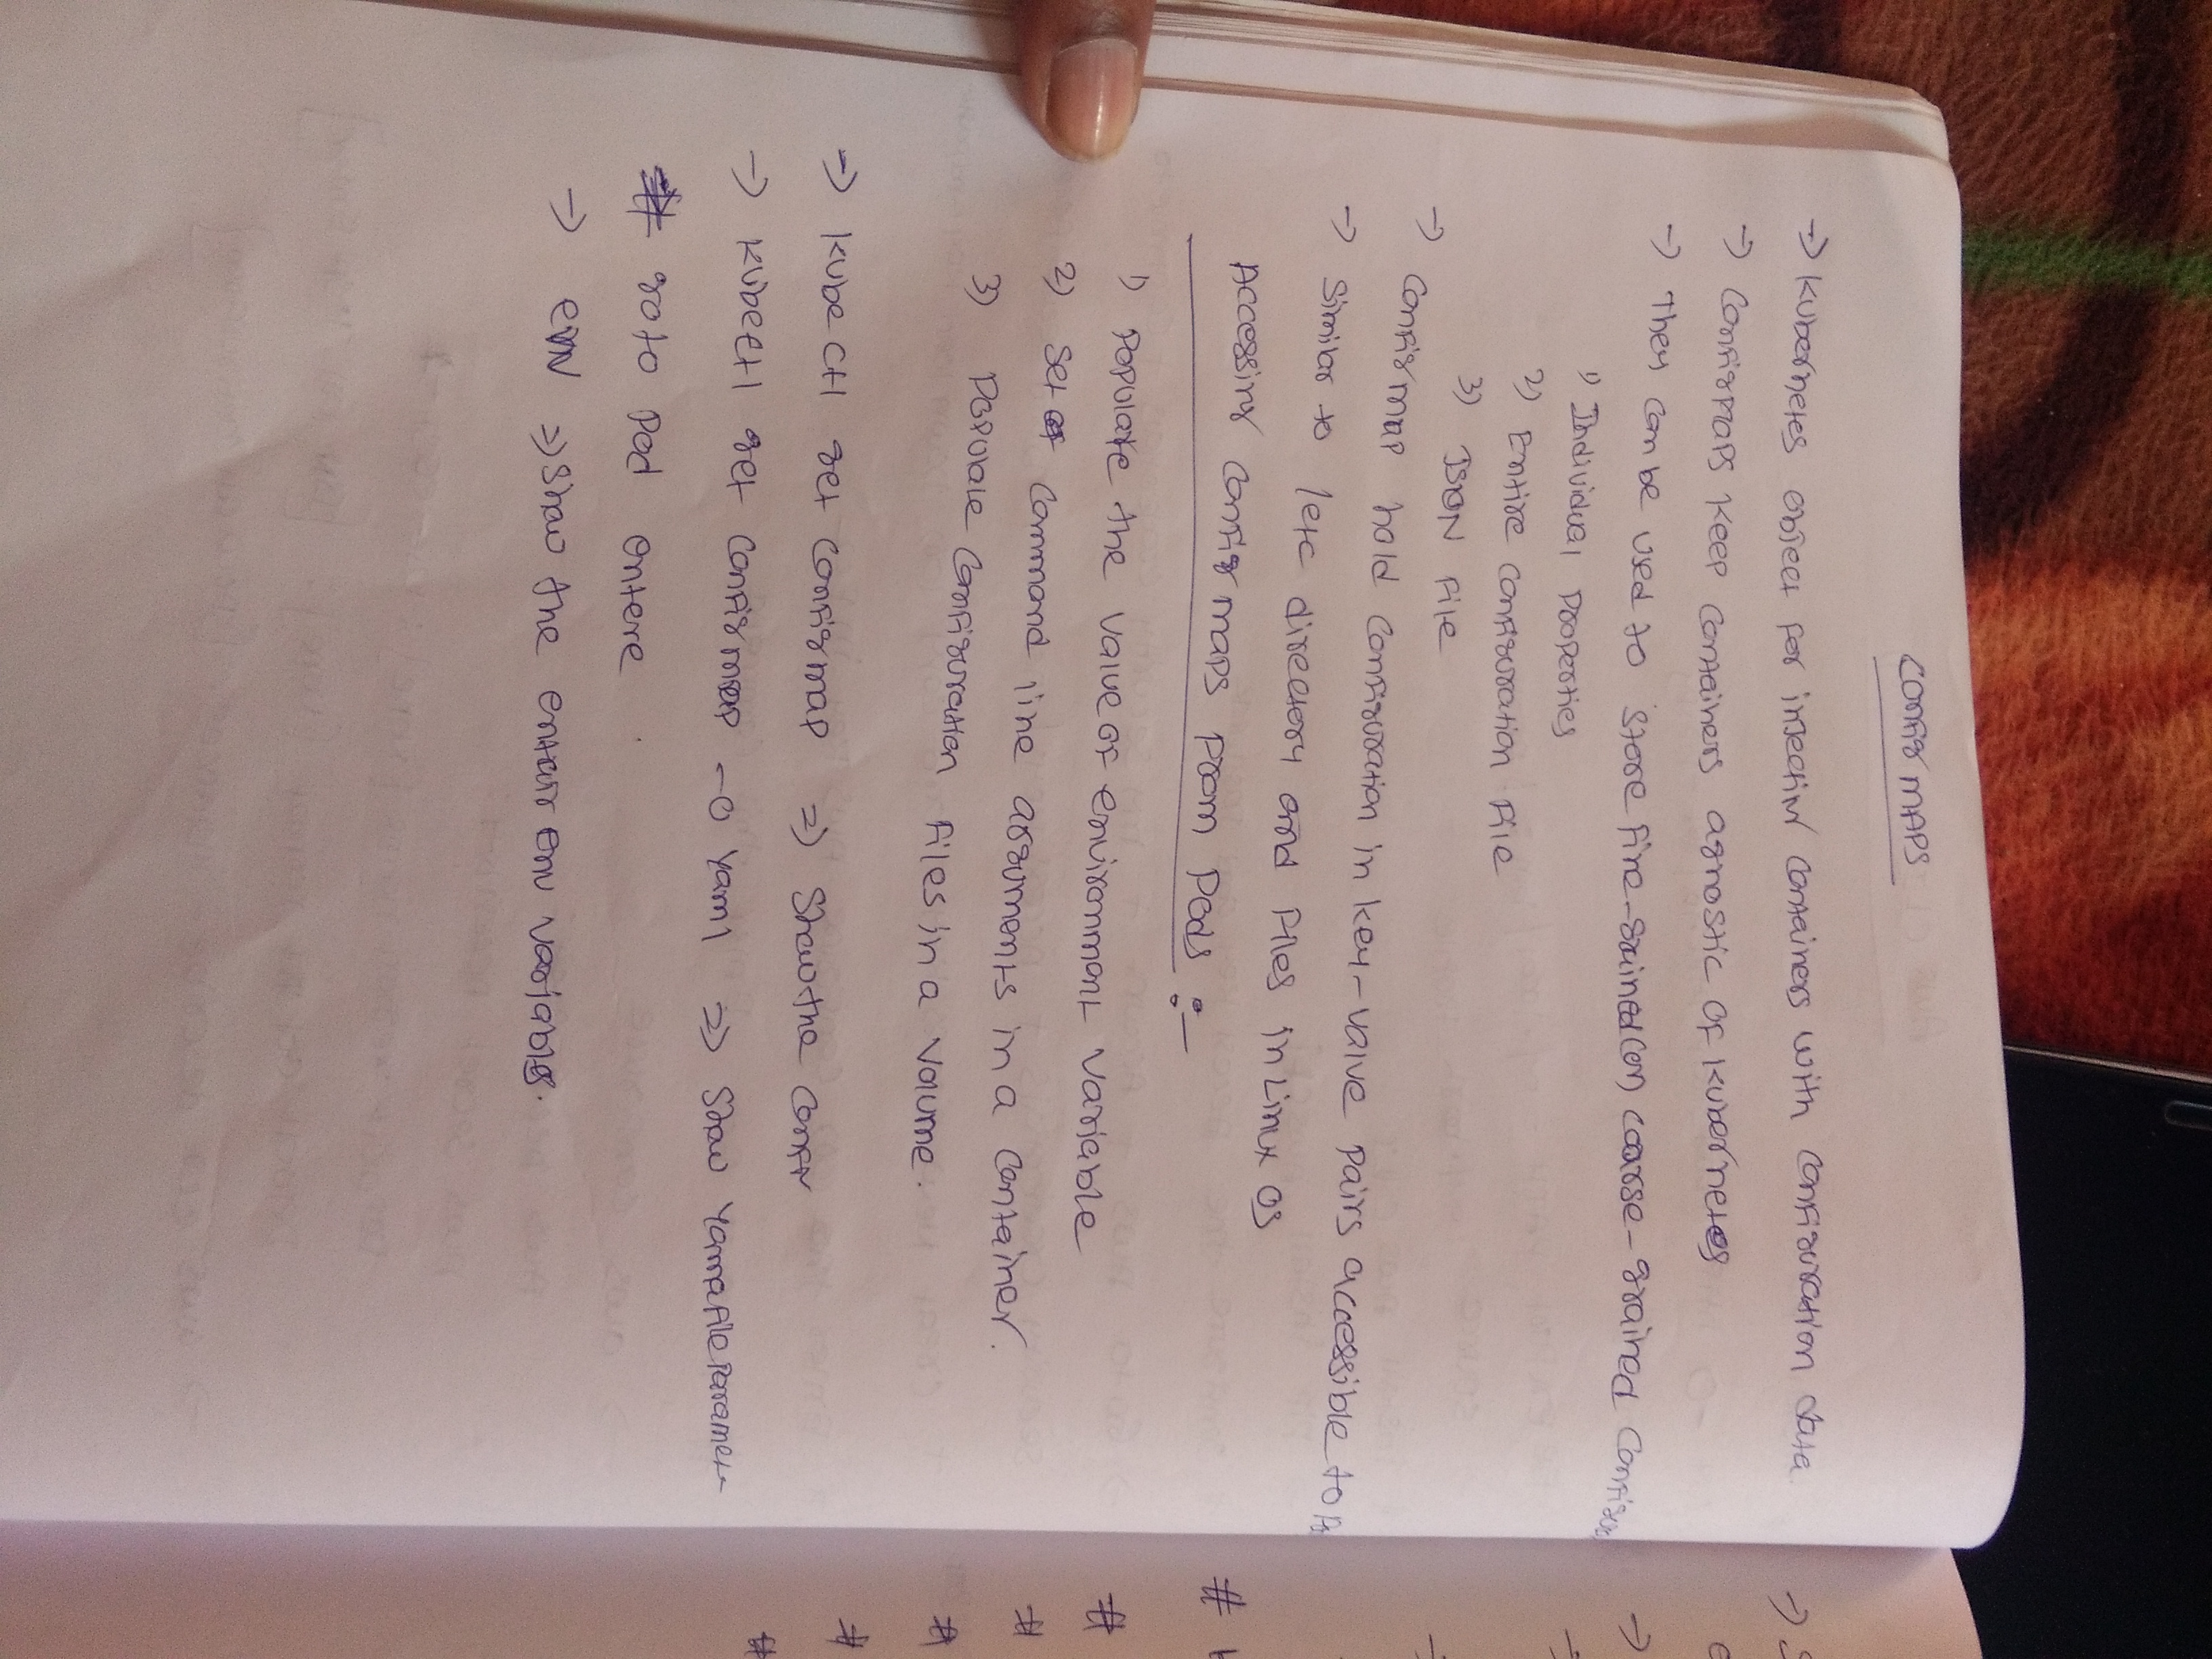 CONFIG MAPS
-> Kubernetes object for injecting containers with configuration data
-> Configmaps keep containers agnostic of Kubernetes
-> They can be used to store fine-grained (or) coarse-grained Configur
1) Individual Properties
2) Entire configuration file
3) JSON file
-> Configmap hold configuration in key-value pairs accessible to Po
-> Similar to /etc directory and files in Linux OS
Accessing Config maps from Pods :-
1) Populate the value of environment variable
2) Set command line arguments in a container.
3) Populate Configuration files in a volume.
-> Kube ctl get configmap => Show the config
-> Kubectl get configmap -o yaml => Show file paramet
# go to pod entere
-> => Show the env variables.